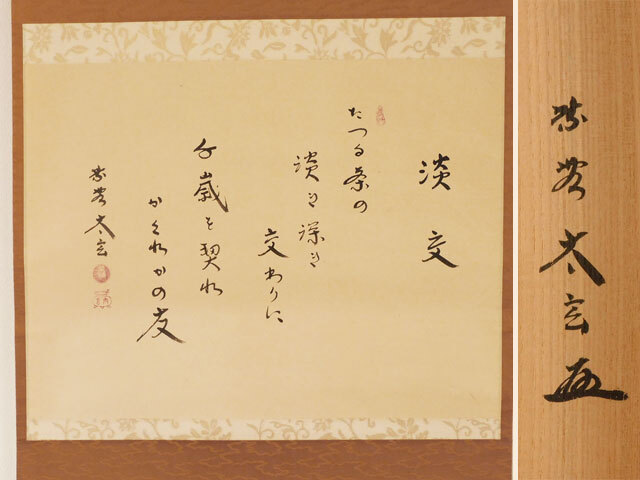 淡交
たつる茶の
淡き深き
交わりに
千歳を契れ
かくれかの友
紫野 太玄
紫野 太玄